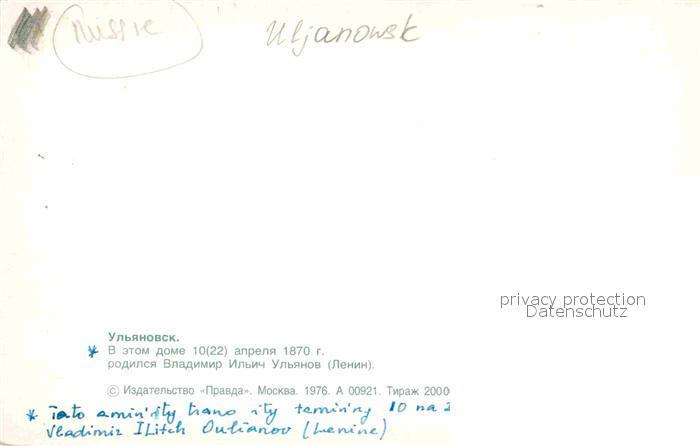 Russie
Uljanowsk
privacy protection
Datenschutz
Ульяновск.
* В этом доме 10(22) апреля 1870 г.
родился Владимир Ильич Ульянов (Ленин).
© Издательство «Правда». Москва. 1976. А 00921. Тираж 2000
* Tato amin'ity trano ity teminny 10 na 2
Vladimir ILitch Oulianov (Lenine)